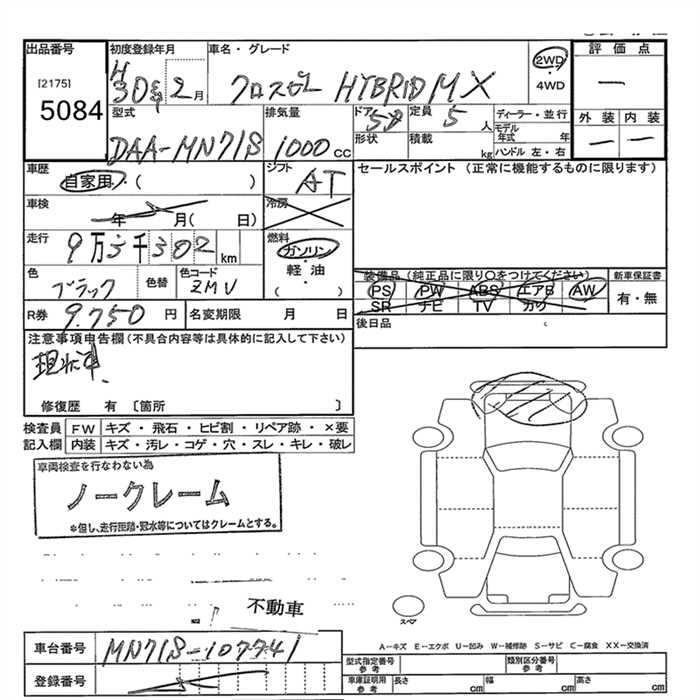 出品番号
[2175]
5084
初度登録年月
H30年2月
車名・グレード
クロスビー HYBRID MX
2WD
・
4WD
評価点
—
外装 内装
— —
型式
DAA-MN71S
排気量
1000cc
ドア
5D
形状
定員
5人
積載
kg
ディーラー・並行
モデル年式 年
ハンドル 左・右
車歴
自家用・( )
シフト
AT
車検
年 月( 日)
冷房
走行
9万3千302km
燃料
ガソリン
・
軽油
・
( )
色
ブラック
色替
色コード
ZMV
R券
9.750円
名変期限 月 日
セールスポイント (正常に機能するものに限ります)
装備品(純正品に限り○をつけてください)
PS PW ABS エアB AW
SR ナビ TV カワ
新車保証書
有・無
後日品
注意事項申告欄(不具合内容等は具体的に記入して下さい)
現状車
修復歴 有 〔箇所 〕
検査員 FW キズ・飛石・ヒビ割・リペア跡・×要
記入欄 内装 キズ・汚レ・コゲ・穴・スレ・キレ・破レ
車両検査を行なわない為
ノークレーム
※但し、走行距離・冠水等についてはクレームとする。
不動車
スペア
A−キズ E−エクボ U−凹み W−補修跡 S−サビ C−腐食 XX−交換済
車台番号 MN71S-107741
登録番号
型式指定番号参考
類別区分番号参考
車庫証明用参考 長さ cm 幅 cm 高さ cm